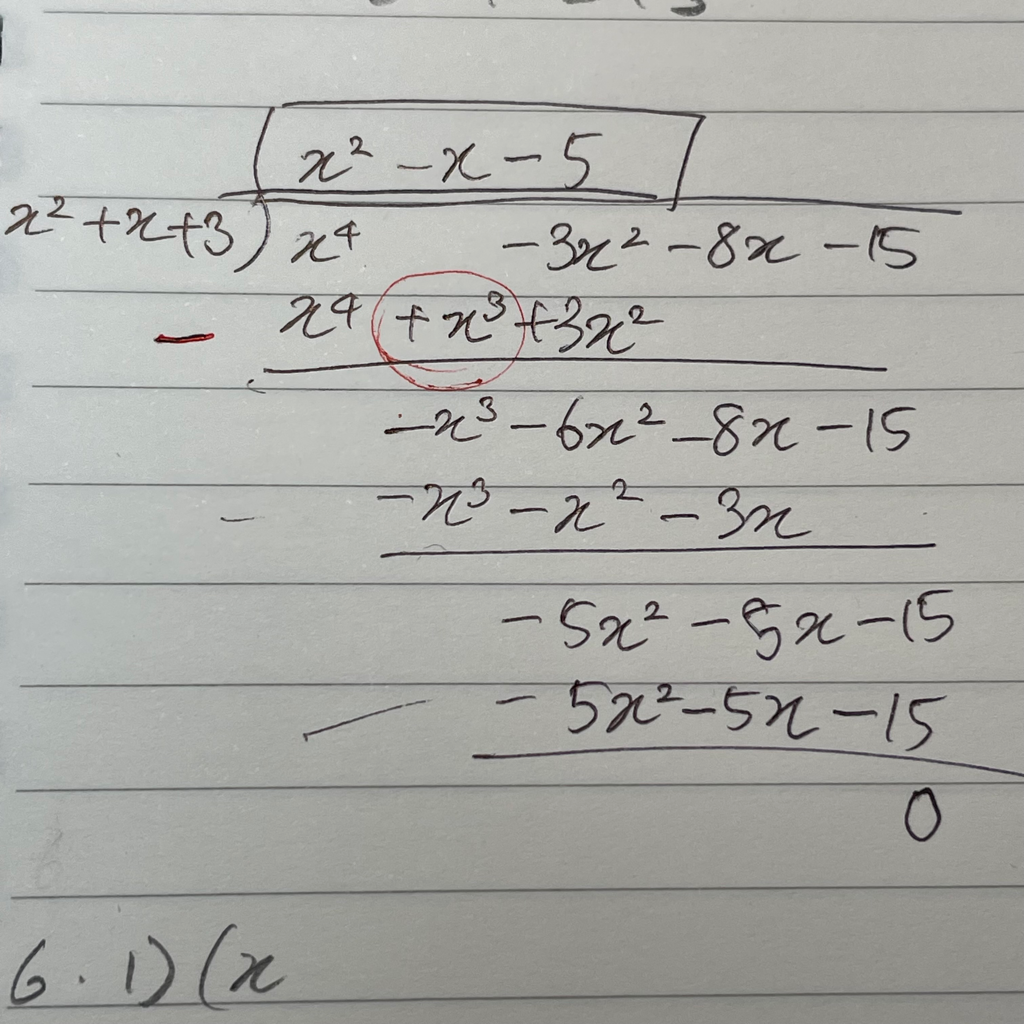 x² - x - 5
x² + x + 3 ) x⁴ - 3x² - 8x - 15
- x⁴ + x³ + 3x²
- x³ - 6x² - 8x - 15
- - x³ - x² - 3x
- 5x² - 5x - 15
- - 5x² - 5x - 15
0
6. 1) (x